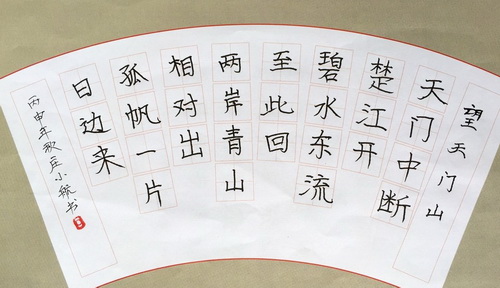 望天门山
天门中断
楚江开
碧水东流
至此回
两岸青山
相对出
孤帆一片
日边来
丙申年秋小书